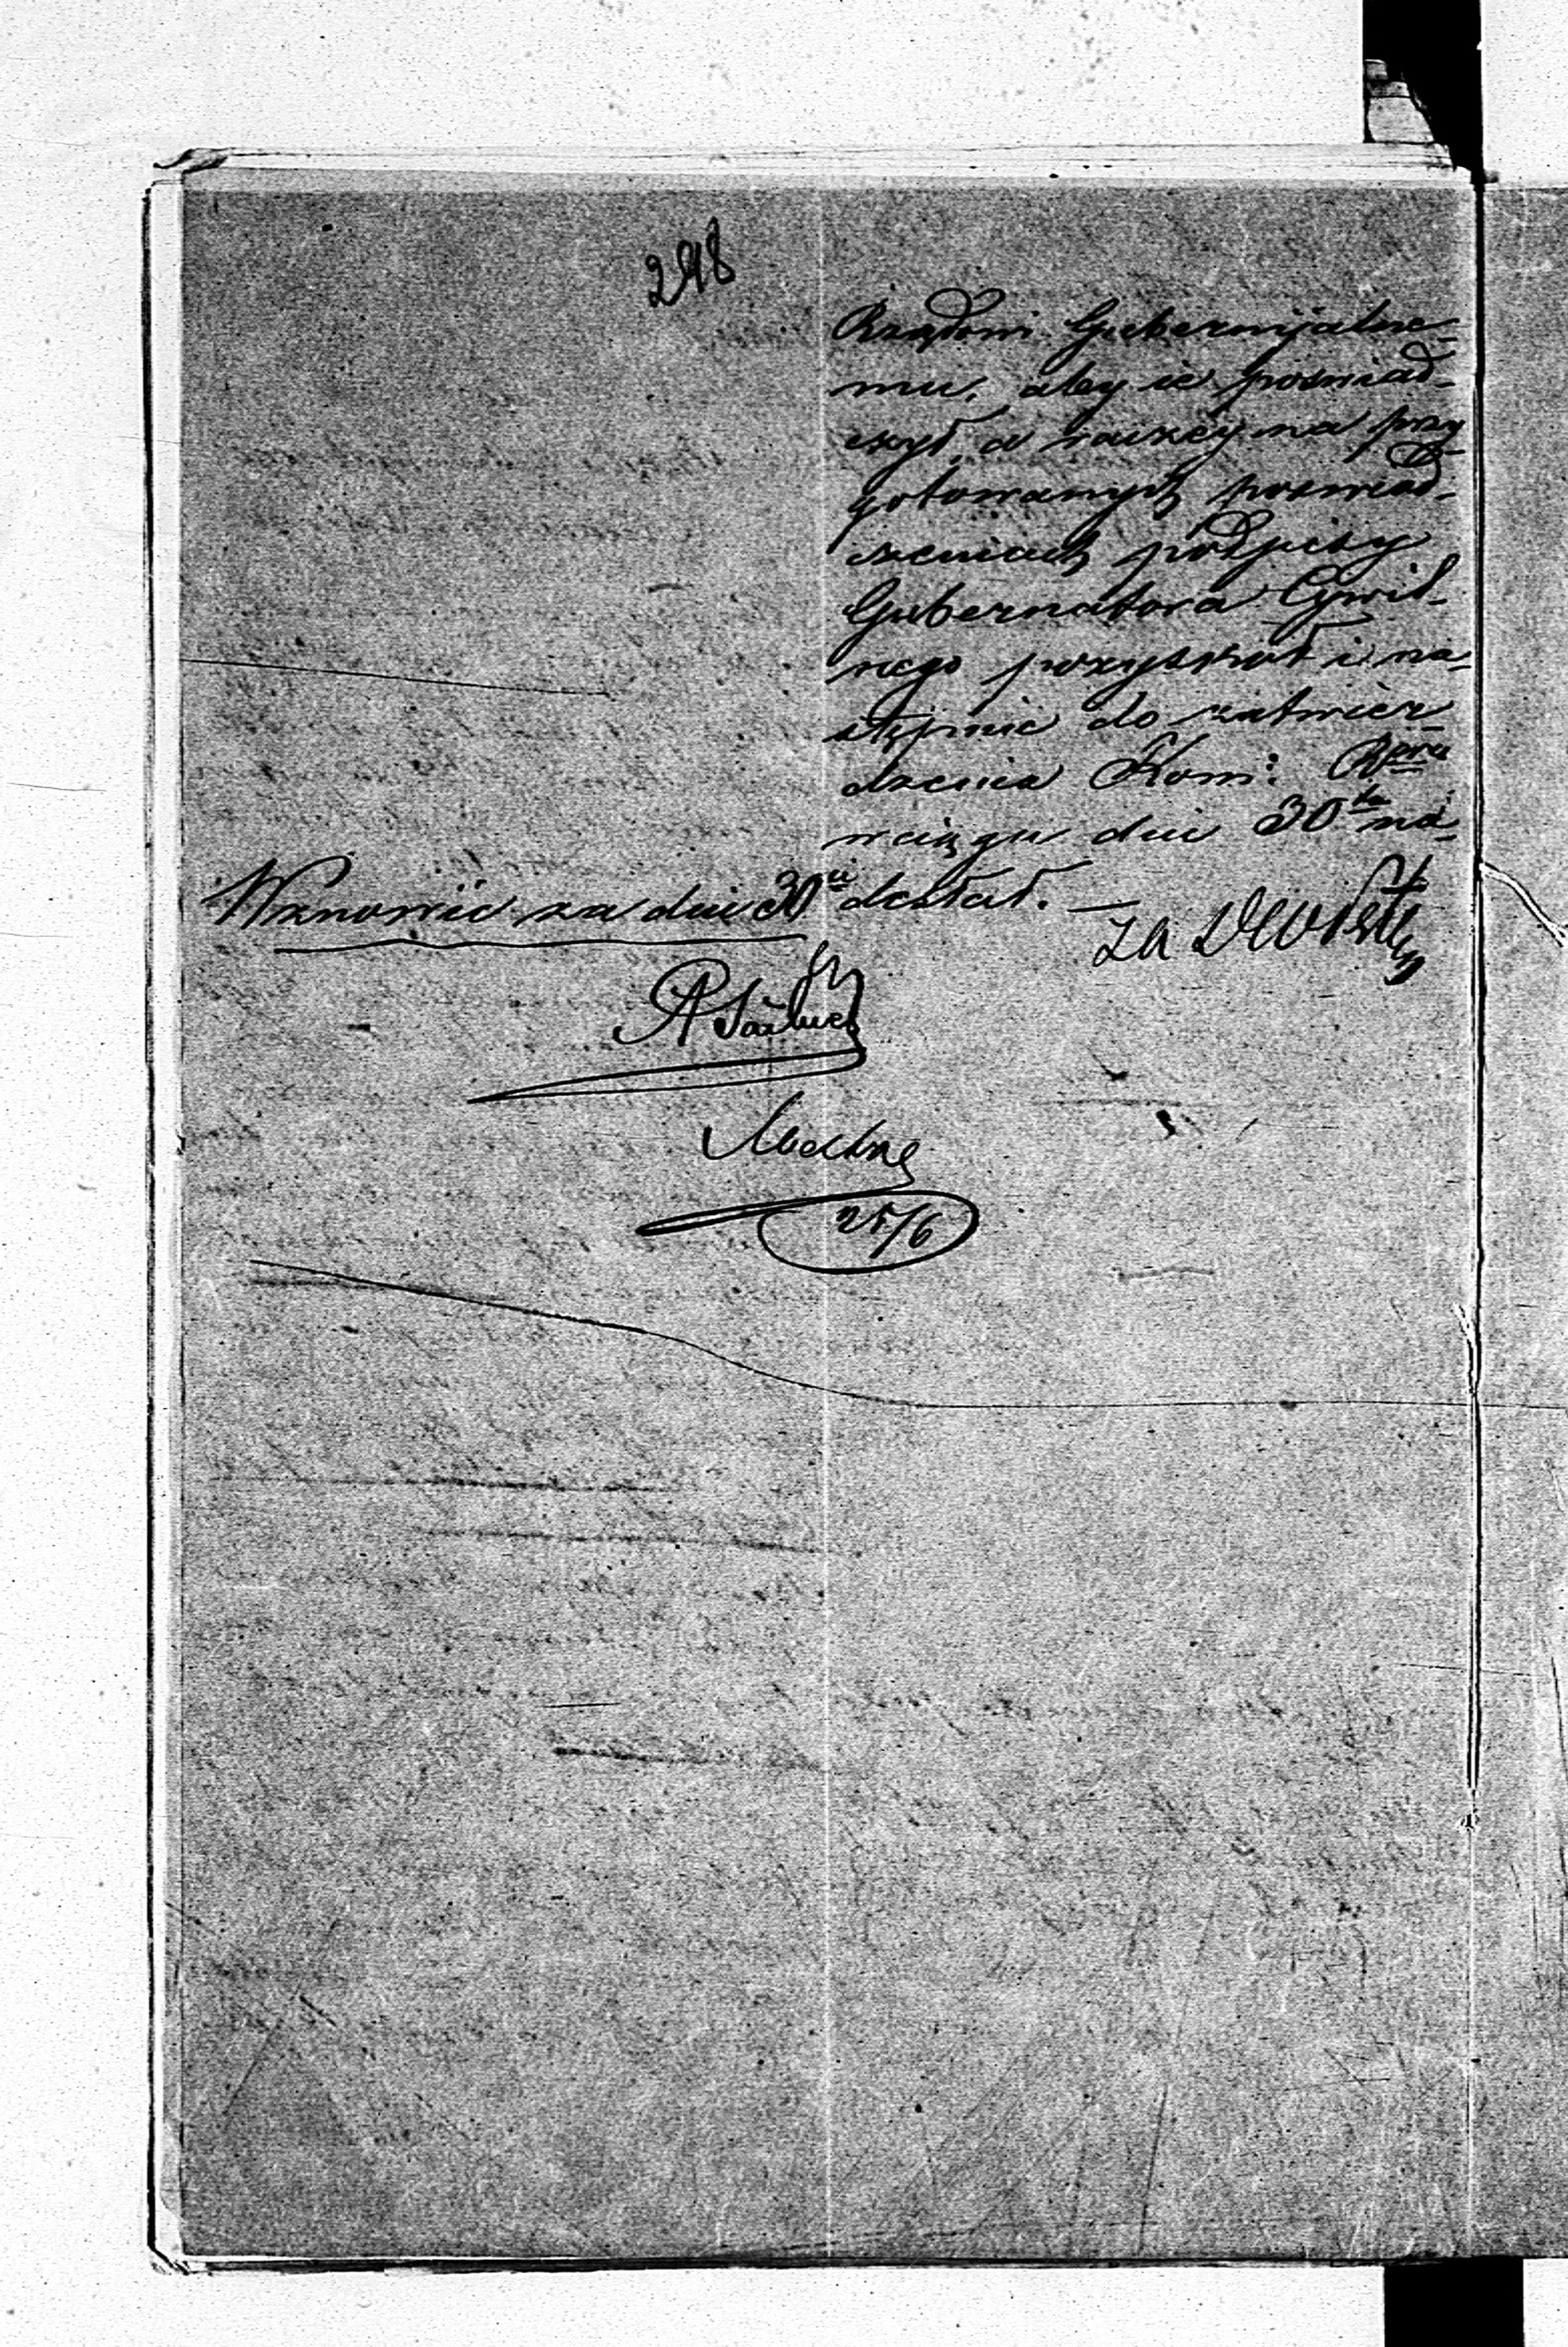 298
Rządowi Gubernijalne-
mu, aby ie poświad-
czył, a raczey na przy
gotowanych poświad-
czeniach podpisy
Gubernatora Cywil-
nego pozyskał i na-
stępnie do zatwier-
dzenia Kom: Rząd
w ciągu dni 30tu na-
desłał. —
Wznowić za dni 30ci
za
25/6